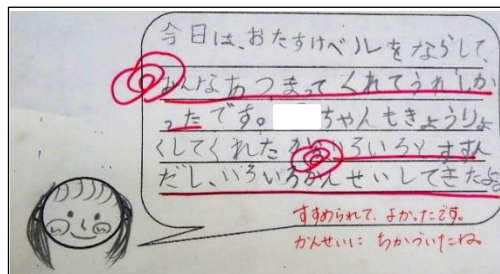 今日は、おたすけベルをならして、
みんなあつまってくれてうれしか
ったです。 ちゃんもきょうりょ
くしてくれたからいろいろすすん
だし、いろいろかんせいしてきたよ。
すすめられて、よかったです。
かんせいに ちかづいたね。